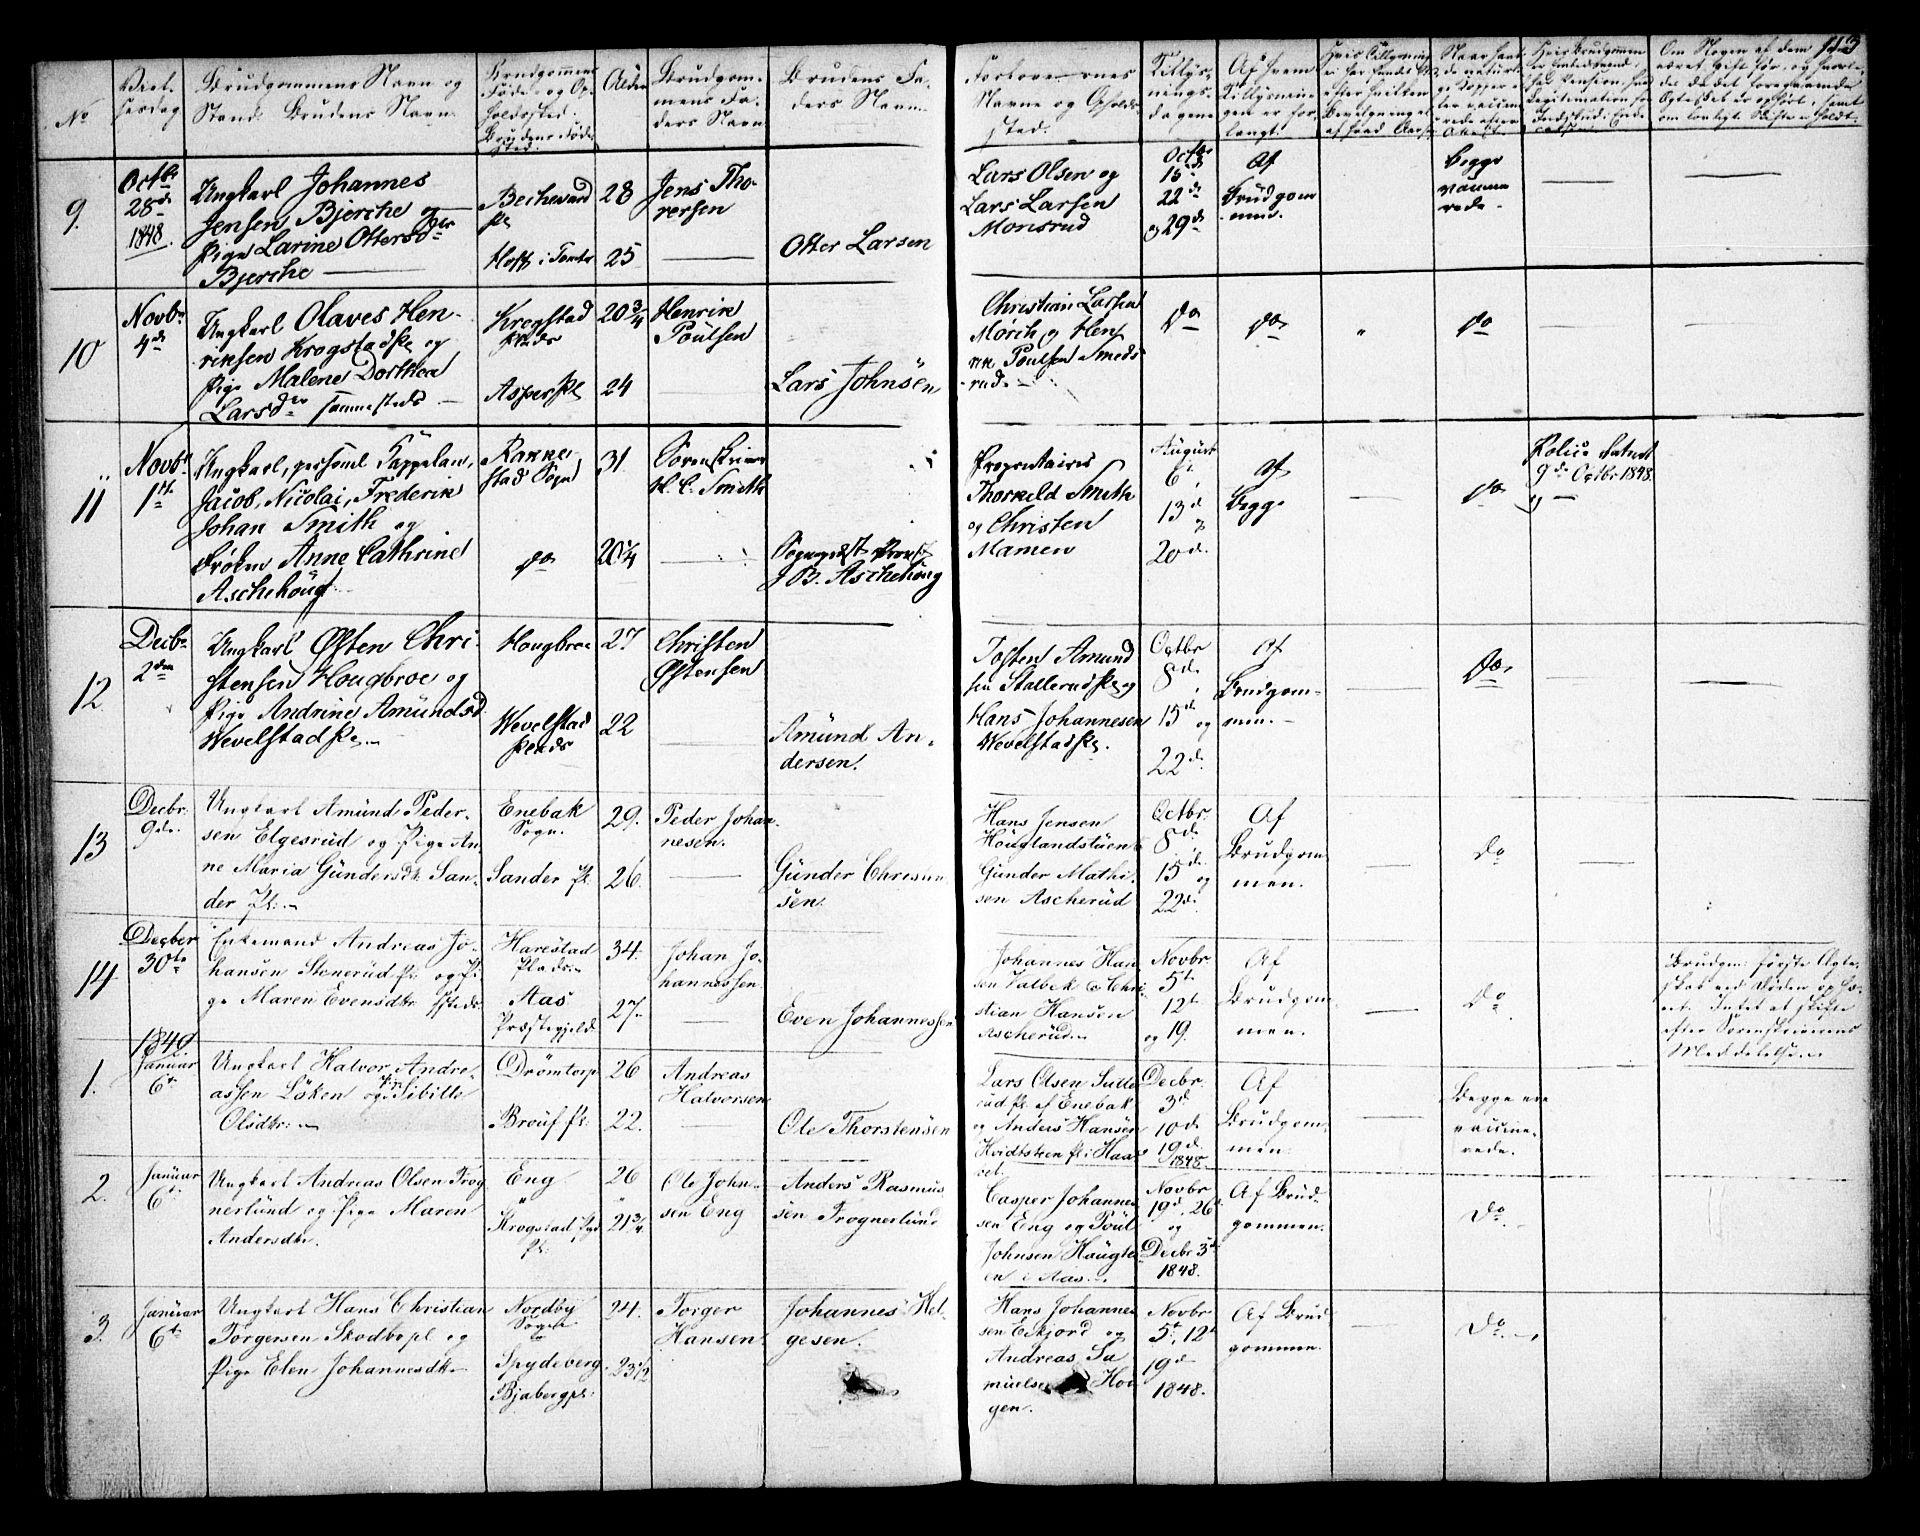 113
No
Viel-
sesdag
Brudgommens Navn og
Stand. Brudens Navn
Brudgommens
Føde- og Op-
holdssted.
Brudens Føde-
sted.
Alder
Brudgom-
mens Fa-
ders Navn
Brudens Fa-
ders Navn
Forlovernes
Navne og Opholds
sted.
Tillys-
nings-
dagene
Af hvem
Tillysnin-
gen er for-
langt.
Om Nogen af dem har
været gift før, og hvorle-
des det foregaaende
9.
Octbr
28de
1848.
Ungkarl Johannes
Jensen Bjerche og
Pige Larine Ottersdtr
Bjerche
Bechevard
Pl
Hoff i Tomter
28
25
Jens Tho-
rersen
Otter Larsen
Lars Olsen og
Lars Larsen
Monsrud
Octbr
15
22de
og 29de
Af
Brudgom
men.
Begge
vaccine
rede
10
Novbr
4de
Ungkarl Olaves Hen-
riksen Krogstadpl og
Pige Malene Dorthea
Larsdtr sammesteds
Krogstad
Plads
Asperpl
20 3/4
24
Henrik
Poulsen
Lars Johnsen
Christian Larsen
Mørch og Hen
rik Poulsen Smeds
rud
Do
Do
"
Do
11
Novbr
1ste
Ungkarl, personel Cappelan,
Jacob, Nicolai, Frederik
Johan Smith og
Frøken Anne Cathrine
Aschehoug
Rakke-
stad Sogn
do
31
20 1/4
Sorenskriver
H. C. Smith
Sognepræst Provst
J B. Aschehoug
Proprietairer
Thorkild Smith
og Christen
Mamen
August
6t
13d
20d.
af
Begge
Do
9de Octbr 1848.
12
Decbr
2den
Ungkarl Østen Chri-
stensen Hougbroe og
Pige Andrine Amundsd
Wevelstadpl.
Hougbroe
Wevelstad
Plads
27
22
Christen
Østensen
Amund An-
dersen.
Tosten Amund
sen Stallerudpl og
Hans Johannesen
Wevelstadpl.
Octbr
8d.
15d. og
22d.
Af
Brudgom-
men.
Do
13
Decbr.
9de.
Ungkarl Amund Peder-
sen Elgesrud og Pige An-
ne Maria Gundersdtr San-
der Pl.
Enebak
Sogn.
Sander Pl.
29.
26.
Peder Johan-
nesen.
Gunder Christian
sen.
Hans Jensen
Houglandstuen
Gunder Mathi-
sen Ascherud
Octbr.
8d.
15d. og
22d.
Af
Brudgom-
men.
Do
14
Decber
30te
Enkemand Andreas Jo-
hansen Stenerud Pl. og Pi-
ge Maren Evensdtr ssteds
Harestad
Plads.
Aas
Præstegjeld
34.
27.
Johan Jo-
hannessen
Even Johannessen
Johannes Han
sen Valbek & Chri-
stian Hansen
Ascherud.
Novbr.
5t
12t
og 19.
Af
Brudgom-
men.
Do
Brudgm: første Ægte-
skab ved Døden ophæ-
vet. Intet at skifte
efter Sorenskriverens
Meddelelse.
1849
1.
Januar
6t.
Ungkarl Halvor Andre-
assen Løken og Pige Sibille
Olsdtr.
Drømtorp
Brouf Pl.
26
22.
Andreas
Halvorsen
Ole Thorstensen
Lars Olsen Sulle
rud Pl. af Enebak
og Anders Hansen
Hvidtsteen pl. i Haa
vet.
Decbr.
3d.
10de
19d.
1848.
Af
Brudgom-
men.
Begge ere
vaccine-
rede.
2.
Januar
6t.
Ungkarl Andreas Olsen Frog
nerlund og Pige Maren
Andersdtr.
Eng
"
Krogstad
Pl.
26
"
21 3/4
Ole John-
sen Eng
Anders Rasmus
sen Frognerlund
Casper Johannes
sen Eng og Poul
Johnsen Haugte
en i Aas.
Novbr
19d. 26d
og
Decbr 3d
1848.
Af Brud-
gommen.
Do.
3.
Januar
6t
Ungkarl Hans Christian
Torgersen Skodbopl og
Pige Elen Johannesdtr
Nordby
Sogn
Spydeberg
Bjabergpl.
24.
23 1/2
Torger
Hansen
Johannes Hel-
gesen.
Hans Johannes
sen Eskjord og
Andreas Sa
muelsen Hou
gen.
Novbr
5t, 12t
19d
1848.
Af Brud
gommen.
Do.